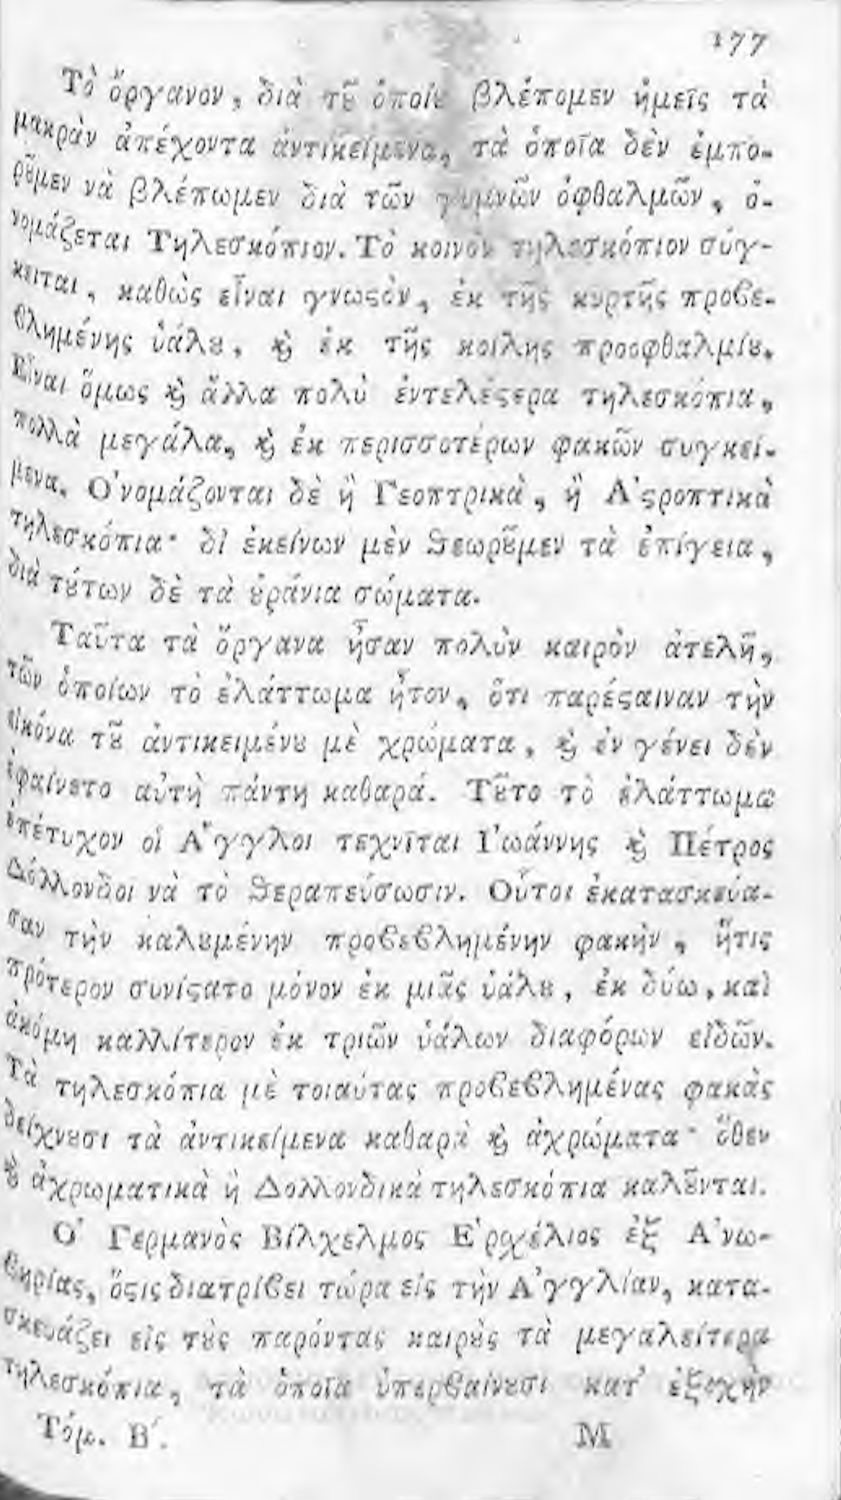 177
Τὸ ὄργανον, διὰ τȣ͂ ὁποίȣ βλέπομεν ἡμεῖς τὰ
μακρὰν ἀπέχοντα ἀντικείμενα, τὰ ὁποῖα δὲν ἐμπο-
ρȣ͂μεν νὰ βλέπωμεν διὰ τῶν γυμνῶν ὀφθαλμῶν, ὀ-
νομάζεται Τηλεσκόπιον. Τὸ κοινὸν τηλεσκόπιον σύγ-
κειται, καθὼς εἶναι γνωϛὸν, ἐκ τῆς κυρτῆς προβε-
βλημένης ὑάλȣ, ϗ ἐκ τῆς κοίλης προσφθαλμίȣ.
Εἶναι ὅμως ϗ ἄλλα πολὺ ἐντελέϛερα τηλεσκόπια,
πολλὰ μεγάλα, ϗ ἐκ περισσοτέρων φακῶν συγκεί-
μενα. Ὀνομάζονται δὲ ἢ Γεοπτρικὰ, ἢ Ἀϛροπτικὰ
τηλεσκόπια· δἰ ἐκείνων μὲν θεωρȣ͂μεν τὰ ἐπίγεια,
διὰ τȣ́των δὲ τὰ ȣ̓ράνια σώματα.
Ταῦτα τὰ ὄργανα ἦσαν πολὺν καιρὸν ἀτελῆ,
τῶν ὁποίων τὸ ἐλάττωμα ἦτον, ὅτι παρέϛαιναν τὴν
εἰκόνα τȣ͂ ἀντικειμένȣ μὲ χρώματα, ϗ ἐν γένει δὲν
ἐφαίνετο αὐτὴ πάντη καθαρά. Τȣ͂το τὸ ἐλάττωμα
ἐπέτυχον οἱ Ἄγγλοι τεχνῖται Ἰωάννης ϗ Πέτρος
Δόλλονδοι νὰ τὸ θεραπεύσωσιν. Οὗτοι ἐκατασκεύα-
σαν τὴν καλȣμένην προβεβλημένην φακὴν, ἥτις
πρότερον συνίϛατο μόνον ἐκ μιᾶς ὑάλȣ, ἐκ δύω, καὶ
ἀκόμη καλλίτερον ἐκ τριῶν ὑάλων διαφόρων εἰδῶν.
Τὰ τηλεσκόπια μὲ τοιαύτας προβεβλημένας φακὰς
δείχνȣσι τὰ ἀντικείμενα καθαρὰ ϗ ἀχρώματα· ὅθεν
ϗ ἀχρωματικὰ ἢ Δολλονδικὰ τηλεσκόπια καλȣ͂νται.
Ὁ Γερμανὸς Βίλχελμος Ἑρχέλιος ἐξ Ἀνω-
βηρίας, ὅϛις διατρίβει τώρα εἰς τὴν Ἀγγλίαν, κατα-
σκευάζει εἰς τȣ̀ς παρόντας καιρȣ̀ς τὰ μεγαλείτερα
τηλεσκόπια, τὰ ὁποῖα ὑπερβαίνȣσι κατ' ἐξοχὴν
Τόμ. Β'. Μ